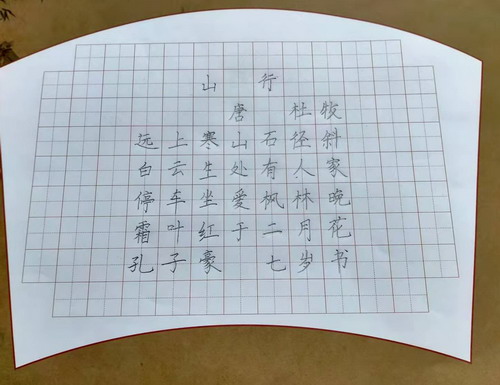 山行
唐 杜牧
远上寒山石径斜
白云生处有人家
停车坐爱枫林晚
霜叶红于二月花
孔子豪 七岁书